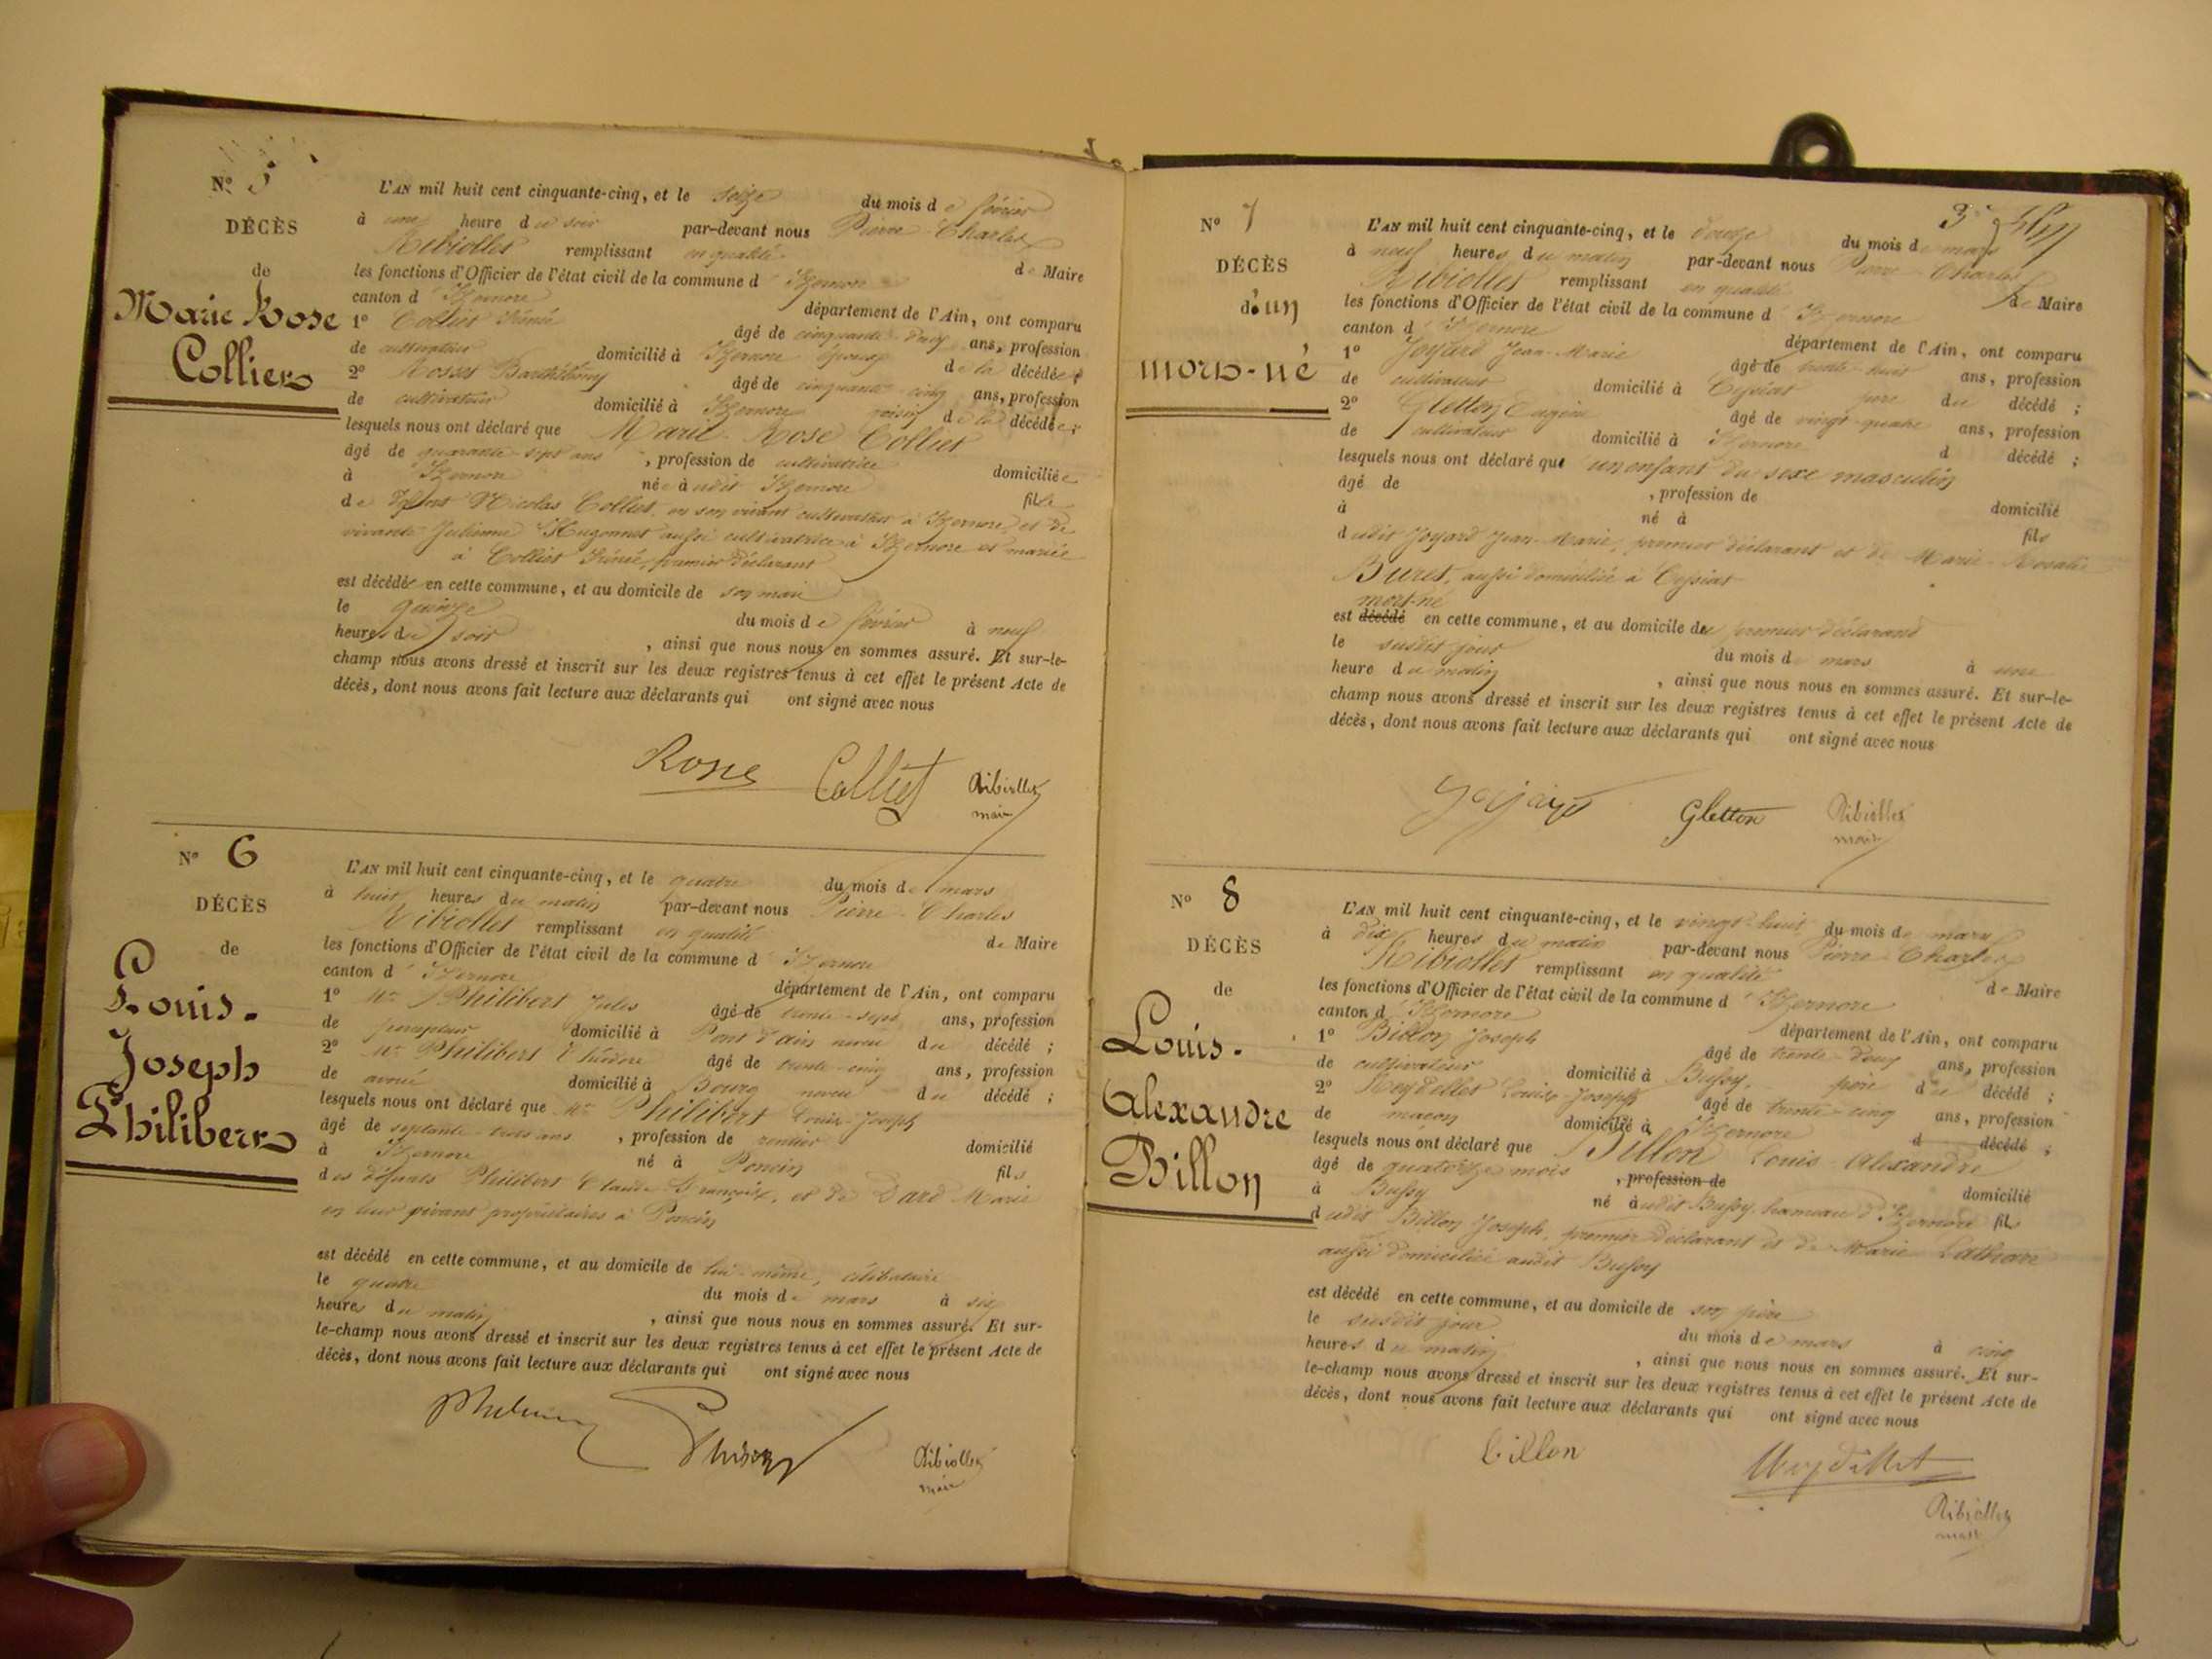 Nº 5
DÉCÈS
de
Marie Rose
Colliet
L'AN mil huit cent cinquante-cinq, et le seize du mois de février
à une heure du soir par-devant nous Pierre-Charles
Ribiollet remplissant en qualité de Maire
les fonctions d'Officier de l'état civil de la commune d'Izernore
canton d'Izernore département de l'Ain, ont comparu
1º Colliet Irénée âgé de cinquante-deux ans, profession
de cultivateur domicilié à Izernore époux de la décédée ;
2º Rosset Barthélemy âgé de cinquante-cinq ans, profession
de cultivateur domicilié à Izernore voisin de la décédée ;
lesquels nous ont déclaré que Marie-Rose Colliet
âgé de quarante-sept ans, profession de cultivatrice domiciliée
à Izernore née àudit Izernore fille
de défunt Nicolas Colliet, en son vivant cultivateur à Izernore, et de
vivante Julienne Hugonnet aussi cultivatrice à Izernore et mariée
à Colliet Irénée, premier déclarant
est décédée en cette commune, et au domicile de son mari
le quinze du mois de février à neuf
heures du soir, ainsi que nous nous en sommes assuré. Et sur-le-
champ nous avons dressé et inscrit sur les deux registres tenus à cet effet le présent Acte de
décès, dont nous avons fait lecture aux déclarants qui ont signé avec nous
Colliet Ribiollet
maire
Nº 6
DÉCÈS
de
Louis-
Joseph
Philibert
L'AN mil huit cent cinquante-cinq, et le quatre du mois de mars
à huit heures du matin par-devant nous Pierre-Charles
Ribiollet remplissant en qualité de Maire
les fonctions d'Officier de l'état civil de la commune d'Izernore
canton d'Izernore département de l'Ain, ont comparu
1º Mr Philibert Jules âgé de trente-sept ans, profession
de percepteur domicilié à Pont d'ain neveu du décédé ;
2º Mr Philibert Théodore âgé de trente-cinq ans, profession
de avoué domicilié à Bourg neveu du décédé ;
lesquels nous ont déclaré que Mr Philibert Louis-Joseph
âgé de septante-trois ans, profession de rentier domicilié
à Izernore né à Poncin fils
des défunts Philibert Claude-François, et de Dard Marie
en leur vivant propriétaires à Poncin
est décédé en cette commune, et au domicile de lui-même, célibataire
le quatre du mois de mars à six
heures du matin, ainsi que nous nous en sommes assuré. Et sur-
le-champ nous avons dressé et inscrit sur les deux registres tenus à cet effet le présent Acte de
décès, dont nous avons fait lecture aux déclarants qui ont signé avec nous
Ribiollet
maire
Nº 7
DÉCÈS
d'un
mort-né
L'AN mil huit cent cinquante-cinq, et le douze du mois de mars
à neuf heures du matin par-devant nous Pierre-Charles
Ribiollet remplissant en qualité de Maire
les fonctions d'Officier de l'état civil de la commune d'Izernore
canton d'Izernore département de l'Ain, ont comparu
1º Joyard Jean-Marie âgé de trente-huit ans, profession
de cultivateur domicilié à Ceyssiat père du décédé ;
2º Gletton Eugène âgé de vingt-quatre ans, profession
de cultivateur domicilié à Izernore d décédé ;
lesquels nous ont déclaré que un enfant du sexe masculin
âgé de , profession de domicilié
à né à fils
dudit Joyard Jean-Marie, premier déclarant et de Marie-Rosalie
Buret, aussi domiciliée à Ceyssiat
mort-né
est décédé en cette commune, et au domicile du premier déclarant
le susdit jour du mois de mars à une
heure du matin, ainsi que nous nous en sommes assuré. Et sur-le-
champ nous avons dressé et inscrit sur les deux registres tenus à cet effet le présent Acte de
décès, dont nous avons fait lecture aux déclarants qui ont signé avec nous
Gletton Ribiollet
maire
Nº 8
DÉCÈS
de
Louis-
Alexandre
Billon
L'AN mil huit cent cinquante-cinq, et le vingt-huit du mois de mars
à dix heures du matin par-devant nous Pierre-Charles
Ribiollet remplissant en qualité de Maire
les fonctions d'Officier de l'état civil de la commune d'Izernore
canton d'Izernore département de l'Ain, ont comparu
1º Billon Joseph âgé de trente-deux ans, profession
de cultivateur domicilié à Bussy, père du décédé ;
2º Reydellet Louis-Joseph âgé de trente-cinq ans, profession
de maçon domicilié à Izernore d décédé ;
lesquels nous ont déclaré que Billon Louis-Alexandre
âgé de quatorze mois, profession de domicilié
à Bussy né àudit Bussy hameau d'Izernore fils
dudit Billon Joseph, premier déclarant et de Marie
aussi domiciliée audit Bussy
est décédé en cette commune, et au domicile de son père
le susdit jour du mois de mars à cinq
heures du matin, ainsi que nous nous en sommes assuré. Et sur-
le-champ nous avons dressé et inscrit sur les deux registres tenus à cet effet le présent Acte de
décès, dont nous avons fait lecture aux déclarants qui ont signé avec nous
billon
Ribiollet
maire